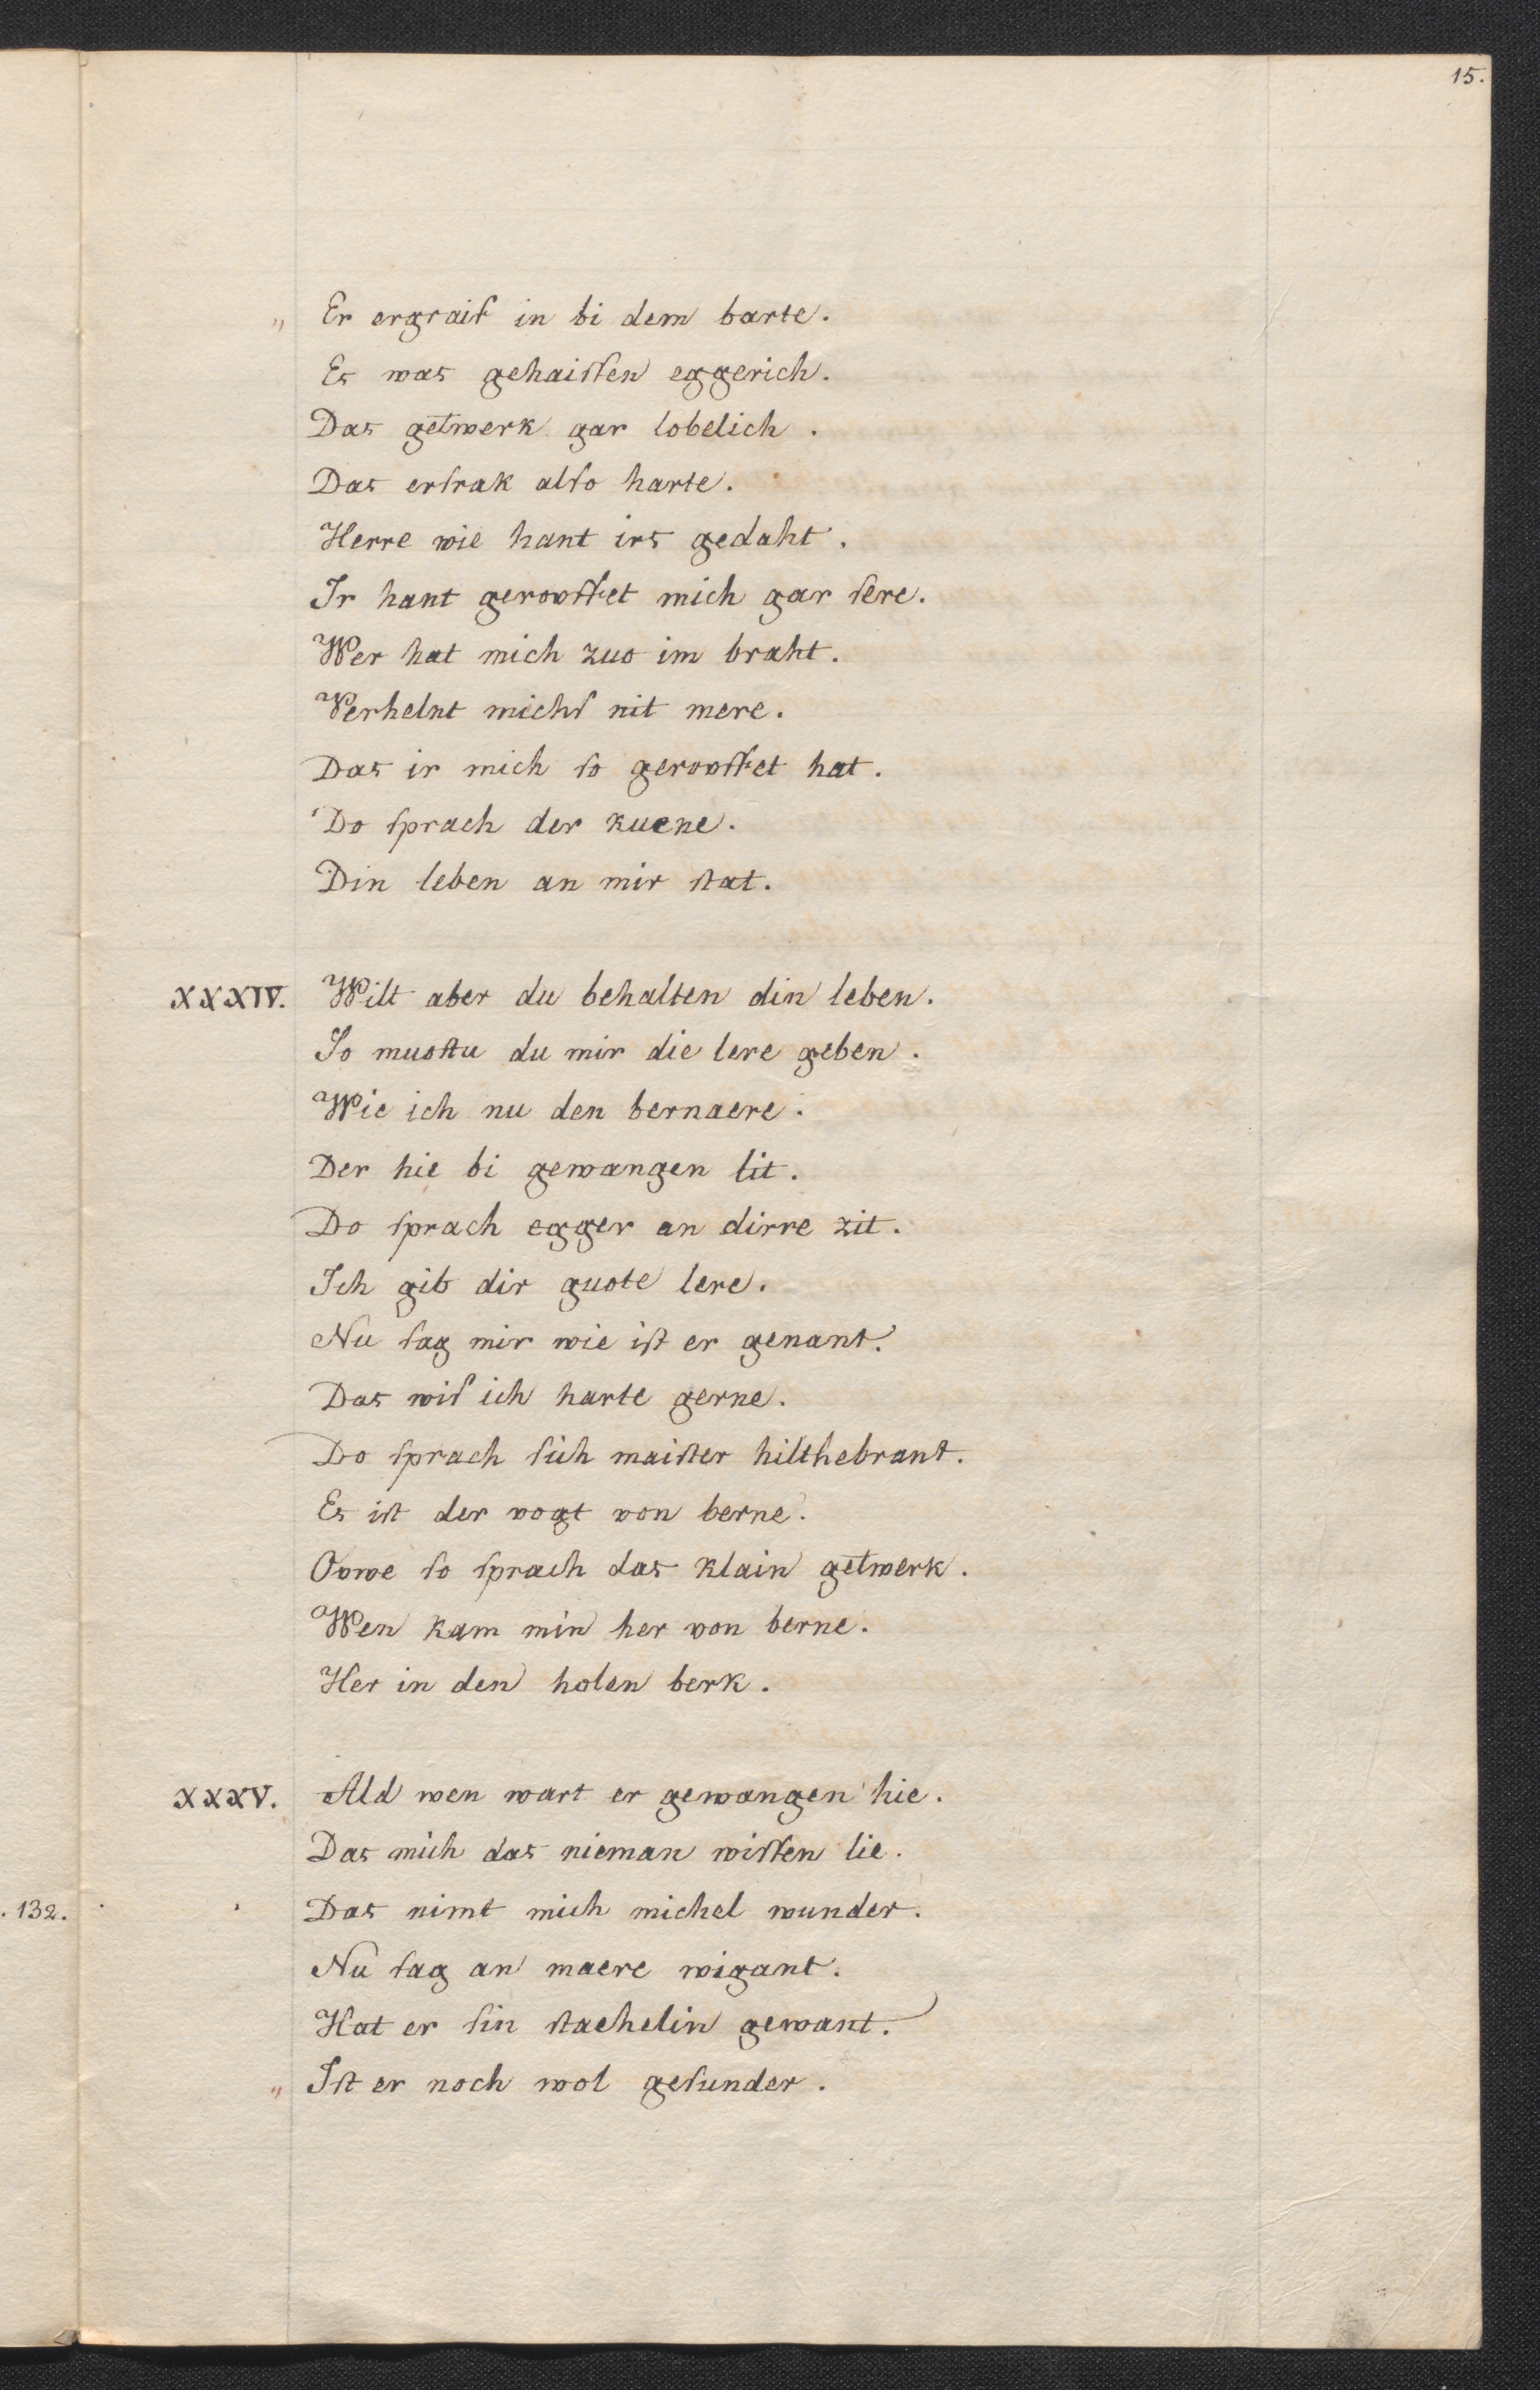 15.
„ Er ergraiſ in bi dem barte.
Es was gehaiſſen eggerich.
Das getwerk gar lobelich.
Das erſrak alſo harte.
Herre wie hant irs gedaht.
Ir hant gerovſſet mich gar ſere.
Wer hat mich zuo im braht.
Verhelnt michſ nit mere.
Das ir mich ſo gerovſſet hat.
Do ſprach der kuene.
Din leben an mir ſtat.
XXXIV. Wilt aber du behalten din leben.
So muoſtu du mir die lere geben.
Wie ich nu den bernaere.
Der hie bi gewangen lit.
Do ſprach egger an dirre zit.
Ich gib dir guote lere.
Nu ſag mir wie iſt er genant.
Das wiſ ich harte gerne.
Do ſprach ſich maiſter hilthebrant.
Es iſt der vogt von berne.
Ovwe ſo ſprach das klain getwerk.
Wen kam min her von berne.
Her in den holen berk.
XXXV. Ald wen wart er gewangen hie.
Das mich das nieman wiſſen lie.
. 132. Das nimt mich michel wunder.
Nu ſag an maere wigant.
Hat er ſin ſtachelin gewant.
„ Iſt er noch wol geſunder.